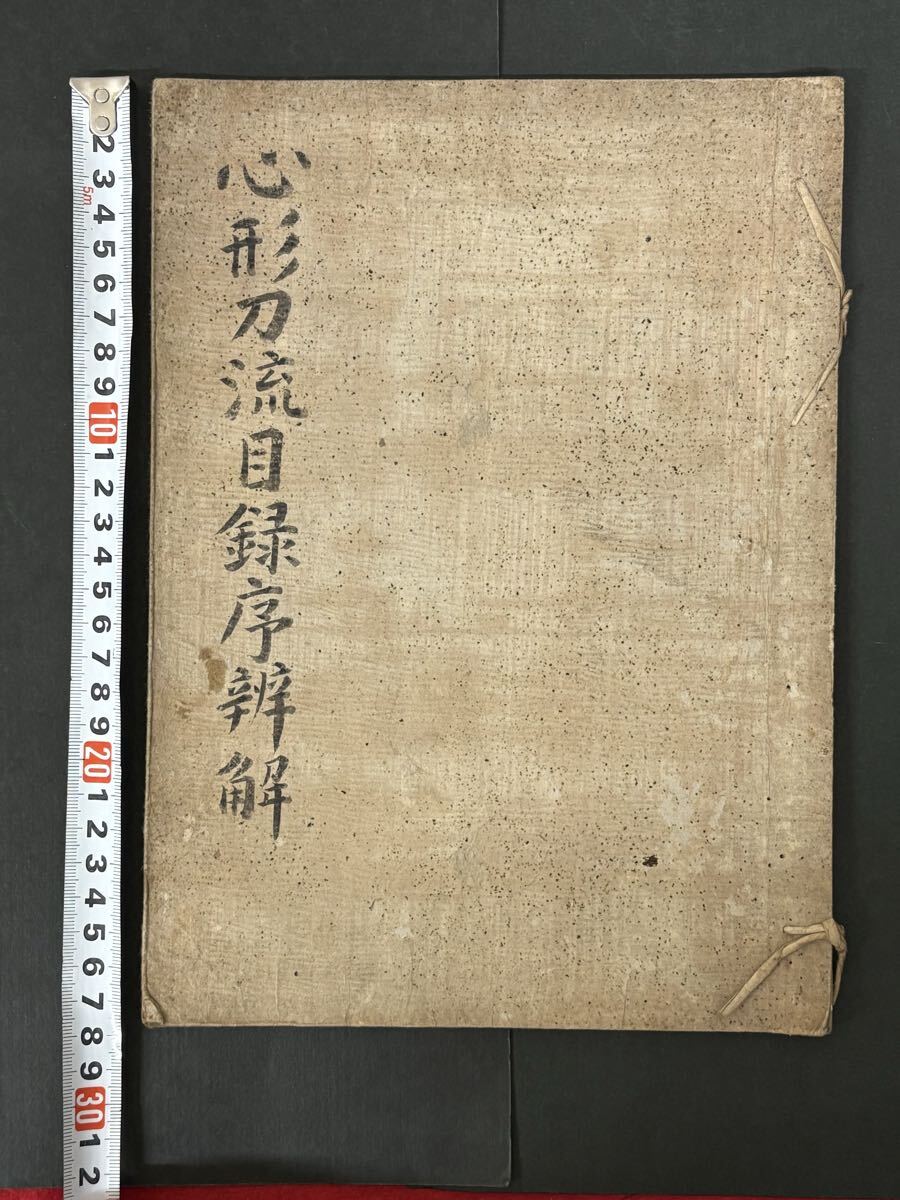 心形刀流目録序辨解
2
3
5m
4
5
6
7
8
9
10
1
2
3
4
5
6
7
8
9
20
1
2
3
4
5
6
7
8
9
30
1
2